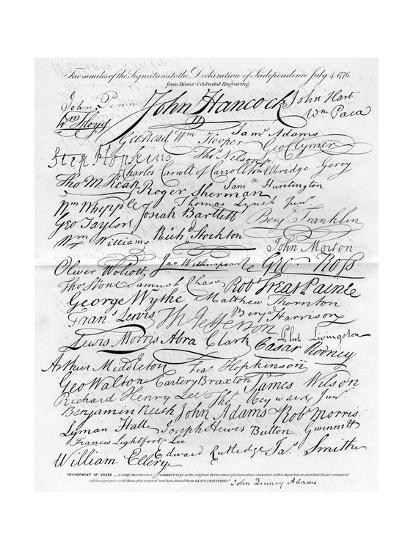 Fac-similes of the Signatures to the Declaration of Independence July 4, 1776.
from Binns' Celebrated Engraving.
John Penn John Hancock John Hart
Wm Floyd Wm Paca
Geo Read Wm Hooper Sam Adams
Step Hopkins Tho Nelson jr. Geo Clymer
Charles Carroll of Carrollton Elbridge Gerry
Tho M Kean Roger Sherman Sam Huntington
Wm Whipple Thomas Lynch Junr
Geo Taylor Josiah Bartlett Benj Franklin
Wm Williams Richd Stockton John Morton
Oliver Wolcott Jno Witherspoon Geo Ross
Thos Stone Samuel Chase Robt Treat Paine
George Wythe Matthew Thornton
Frans Lewis Th Jefferson Benj Harrison
Lewis Morris Abra Clark Phil. Livingston
Cæsar Rodney
Arthur Middleton Fras Hopkinson
Geo Walton Carter Braxton James Wilson
Richard Henry Lee Thos Heyward Junr
Benjamin Rush John Adams Robt Morris
Lyman Hall Joseph Hewes Button Gwinnett
Francis Lightfoot Lee
William Ellery Edward Rutledge Jas Smith
DEPARTMENT OF STATE
John Quincy Adams